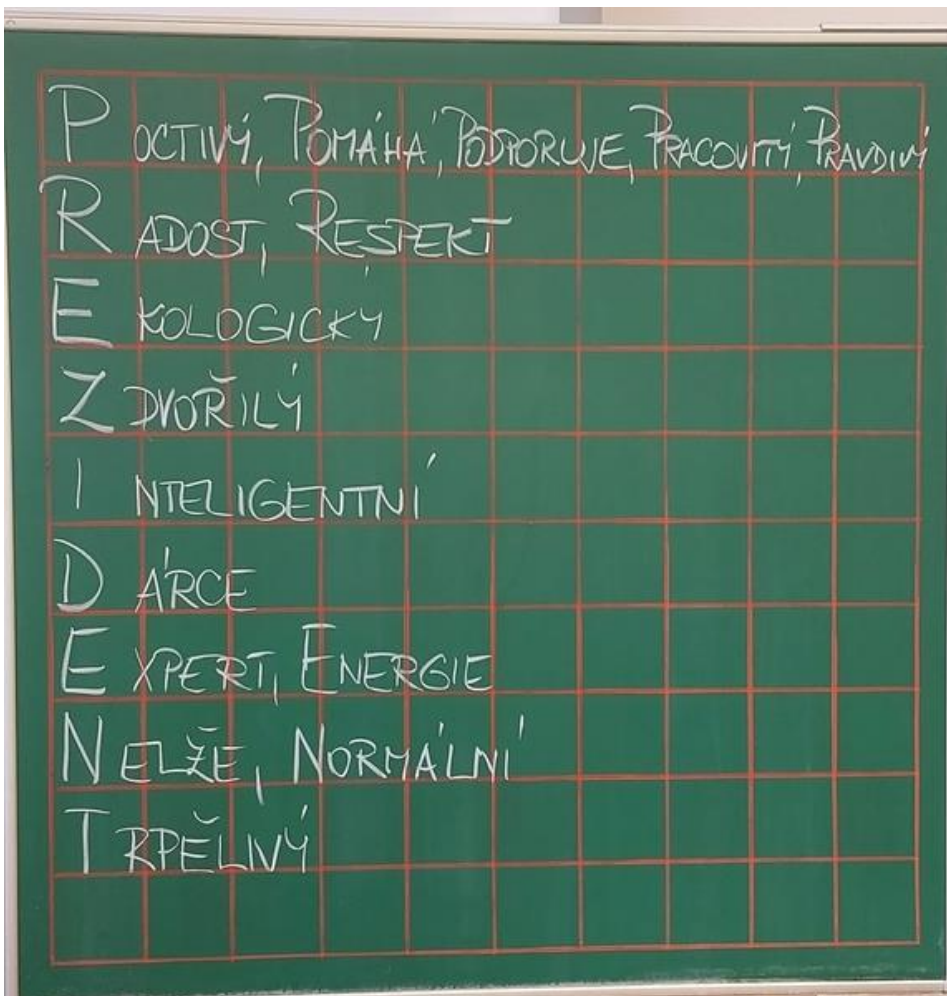 POCTIVÝ, POMÁHÁ, PODPORUJE, PRACOVITÝ, PRAVDIVÝ
RADOST, RESPEKT
EKOLOGICKY
ZDVOŘILÝ
INTELIGENTNÍ
DÁRCE
EXPERT, ENERGIE
NELŽE, NORMÁLNÍ
TRPĚLIVÝ